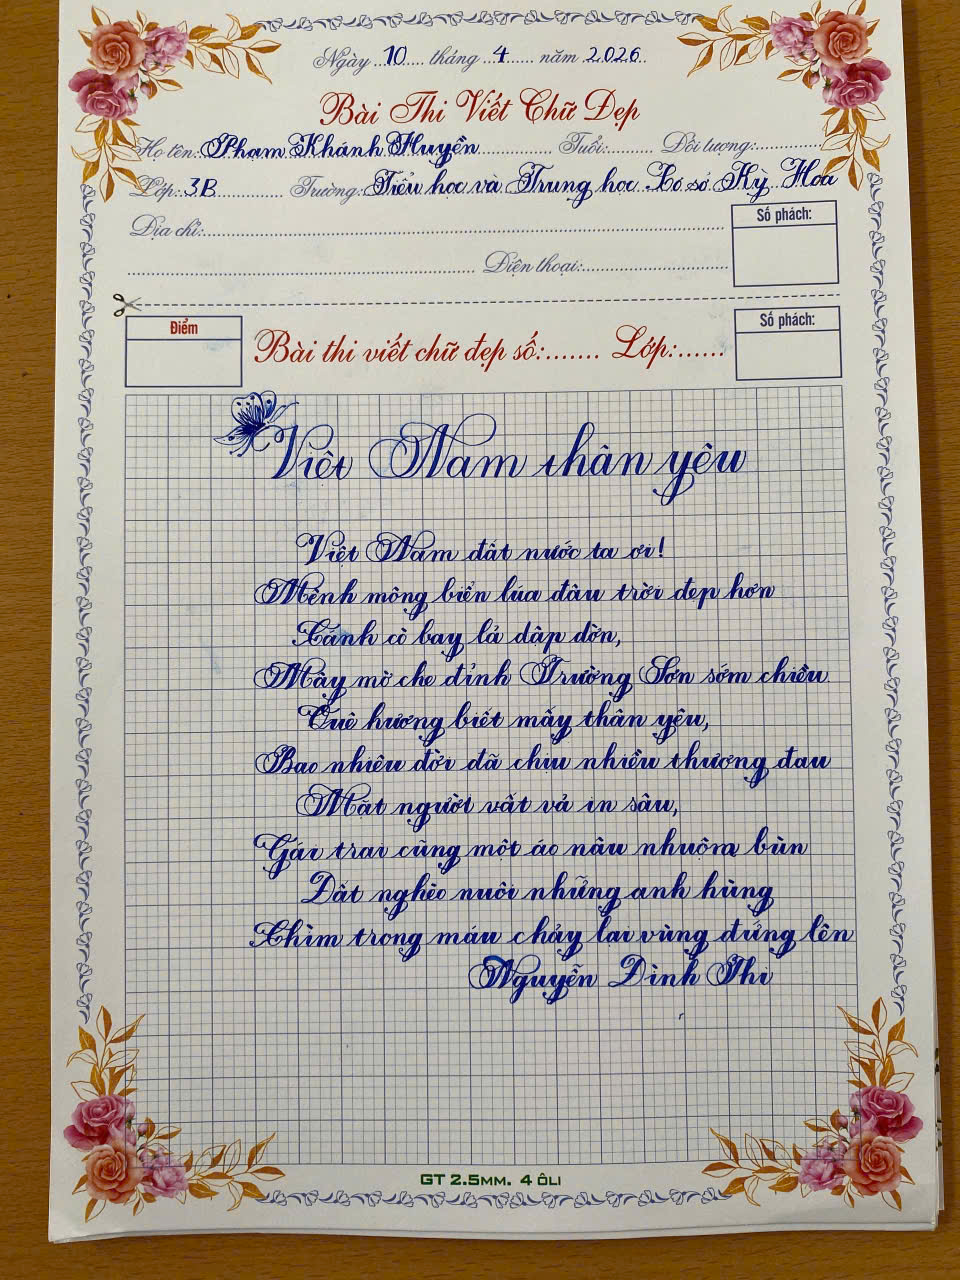 Ngày 10 tháng 4 năm 2026
Bài Thi Viết Chữ Đẹp
Họ tên: Phạm Khánh Huyền Tuổi: Đối tượng:
Lớp: 3B Trường: Tiểu học và Trung học Cơ sở Kỳ Hoa
Địa chỉ:
Số phách:
Điện thoại:
Điểm
Bài thi viết chữ đẹp số: Lớp:
Số phách:
Việt Nam thân yêu
Việt Nam đất nước ta ơi!
Mênh mông biển lúa đâu trời đẹp hơn
Cánh cò bay lả dập dờn,
Mây mờ che đỉnh Trường Sơn sớm chiều
Quê hương biết mấy thân yêu,
Bao nhiêu đời đã chịu nhiều thương đau
Mặt người vất vả in sâu,
Gái trai cũng một áo nâu nhuộm bùn
Đất nghèo nuôi những anh hùng
Chìm trong máu chảy lại vùng đứng lên
Nguyễn Đình Thi
GT 2.5MM. 4 ÔLI